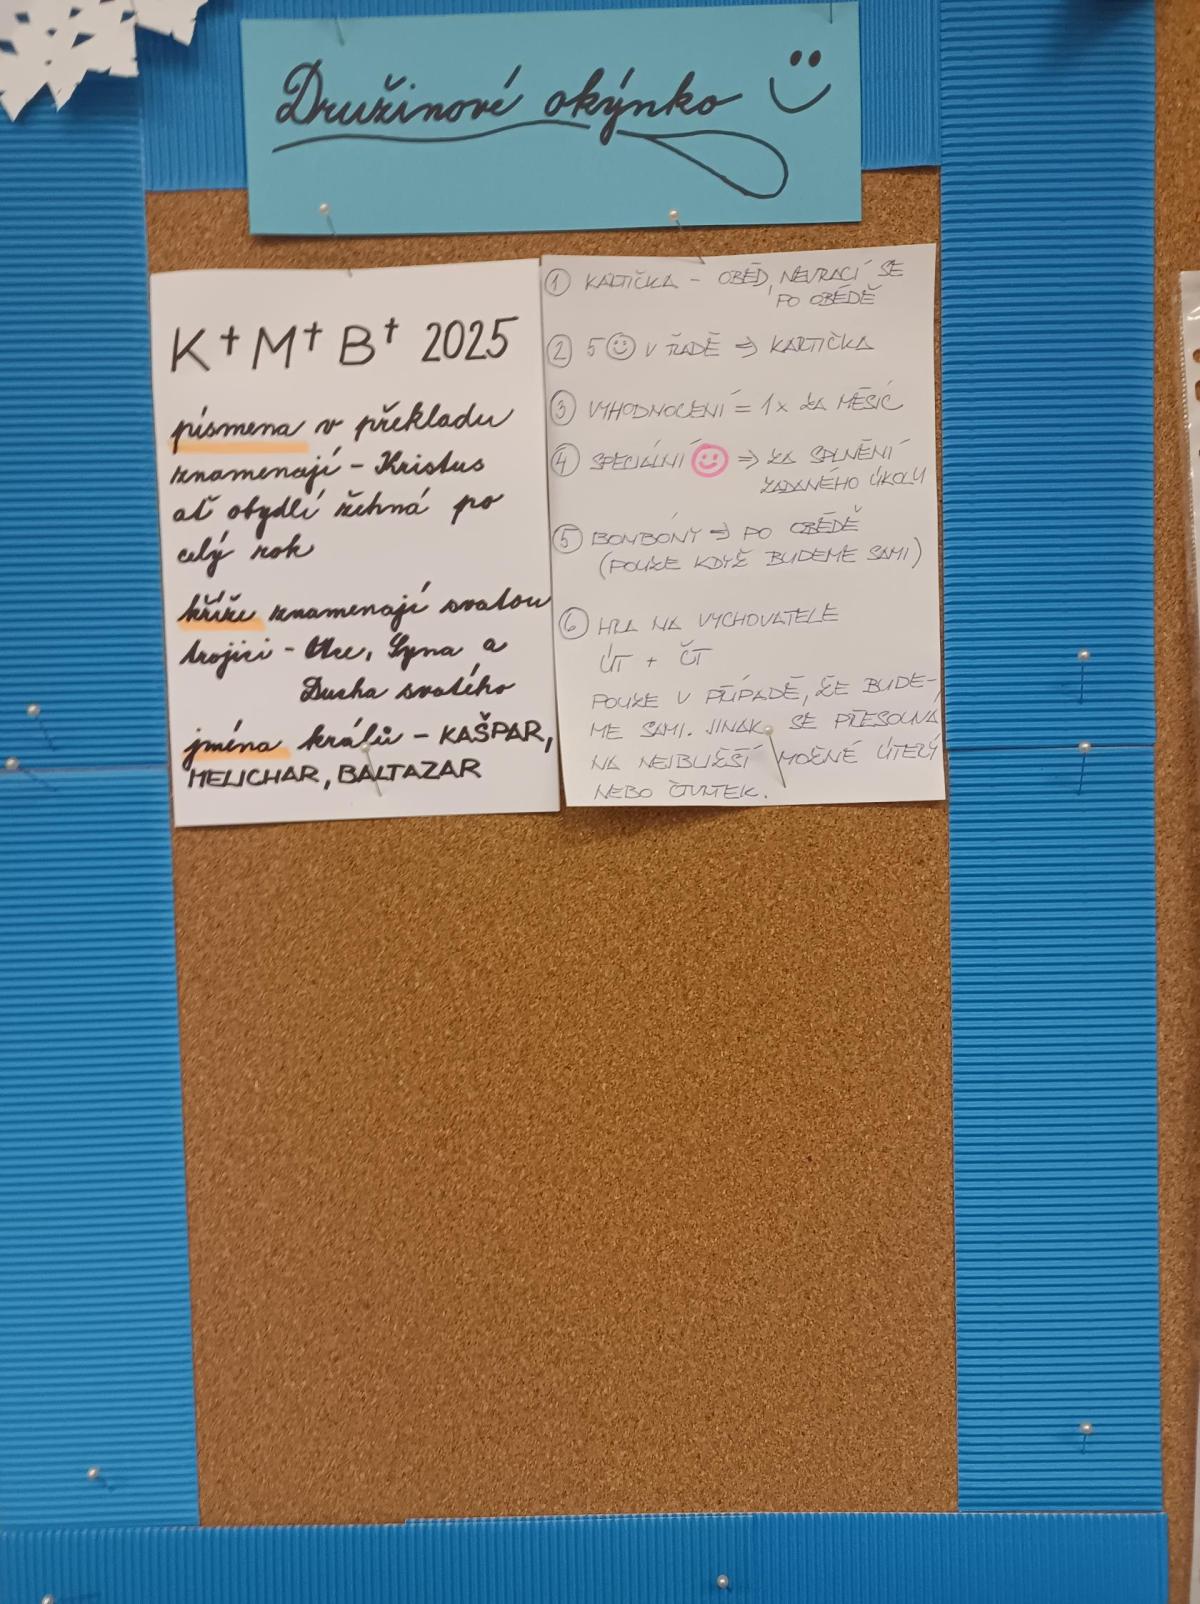 Družinové okýnko
K✝ M✝ B✝ 2025
písmena v překladu
znamenají - Kristus
ať obydlí žehná po
celý rok
kříže znamenají svatou
trojici - Otce, Syna a
Ducha svatého
jména králů - KAŠPAR,
MELICHAR, BALTAZAR
① KARTIČKA - OBĚD, NEVRACÍ SE
PO OBĚDĚ
② 5 ☺ V ŘADĚ ⇒ KARTIČKA
③ VYHODNOCENÍ = 1x ZA MĚSÍC
④ SPECIÁLNÍ ☺ ⇒ ZA SPLNĚNÍ
ZADANÉHO ÚKOLU
⑤ BONBÓNY ⇒ PO OBĚDĚ
(POUZE KDYŽ BUDEME SAMI)
⑥ HRA NA VYCHOVATELE
ÚT + ČT
POUZE V PŘÍPADĚ, ŽE BUDE-
ME SAMI. JINAK SE PŘESOUVÁ
NA NEJBLIŽŠÍ MOŽNÉ ÚTERÝ
NEBO ČTVRTEK.